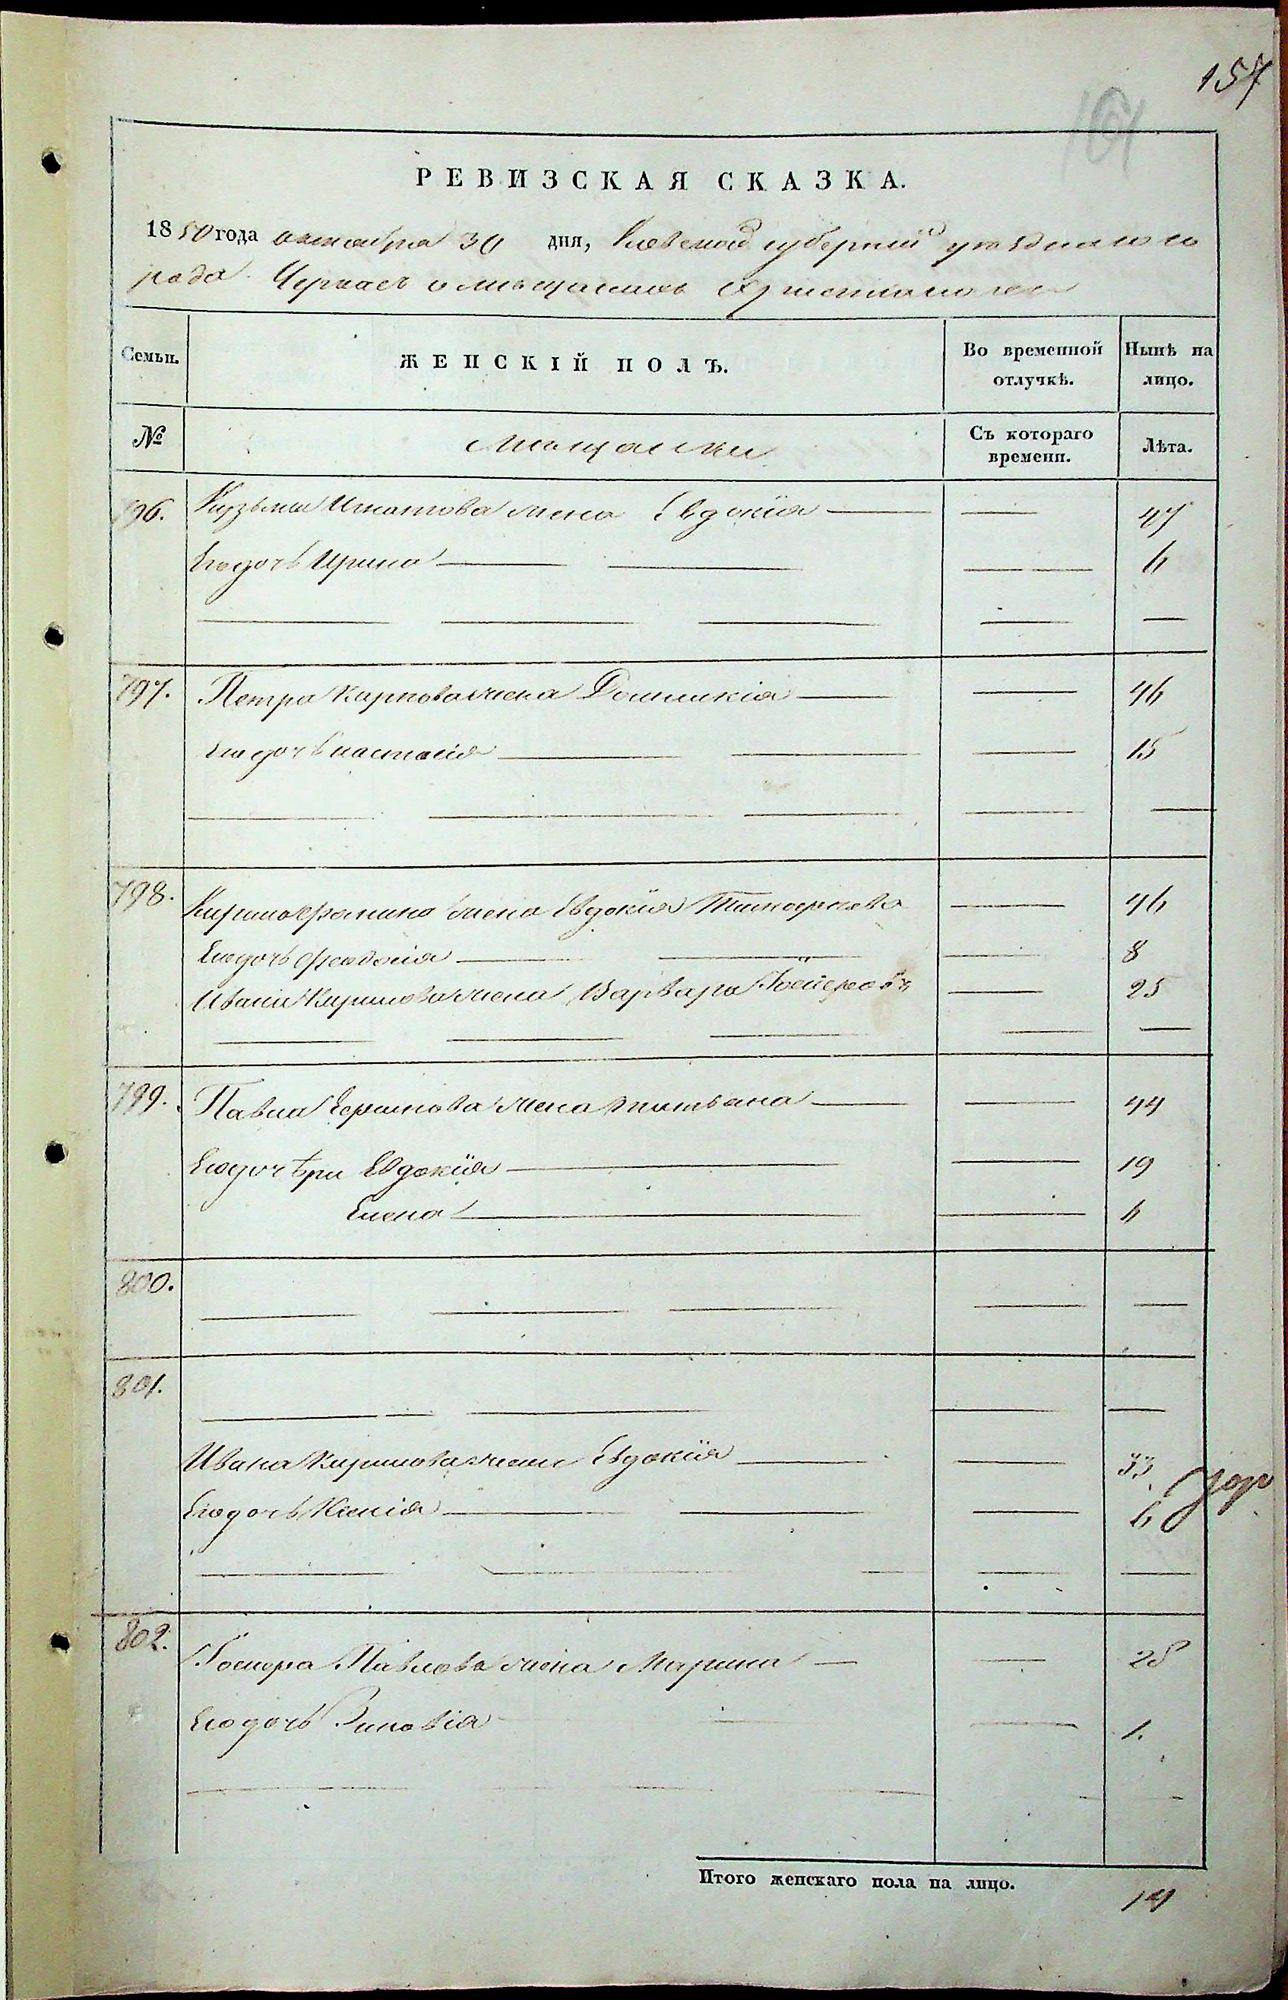 157
161
РЕВИЗСКАЯ СКАЗКА.
1850 года октября 30 дня, Киевской губерній уѣзднаго го
рода Черкасъ о мѣщанахъ христіанахъ
Семьи. ЖЕНСКІЙ ПОЛЪ. Во временной отлучкѣ. Нынѣ на лицо.
№ Мѣщанки Съ котораго времени. Лѣта.
796. Кузьмы Игнатова жена Евдокія — — 47
Его дочь Ирина — — — 6
— — — — —
797. Петра Карпова жена Домникія — — 46
Его дочь Настасія — — — 15
— — — — —
798. жена Евдокія — 46
Его дочь Феодосія — — — 8
Ивана Кирилова жена Варвара — 25
— — — — —
799. Павла жена Татьяна — — 44
Его дочѣри Евдокія — — 19
Елена — — 6
800. — — — — —
801. — — — —
Ивана Кирилова жена Евдокія — — 33
Его дочь Ксенія — — — 6
— — — — —
802. Павлова жена Марина — — 28
Его дочь Зиновія — — 1.
— — — — —
Итого женскаго пола на лицо. 14